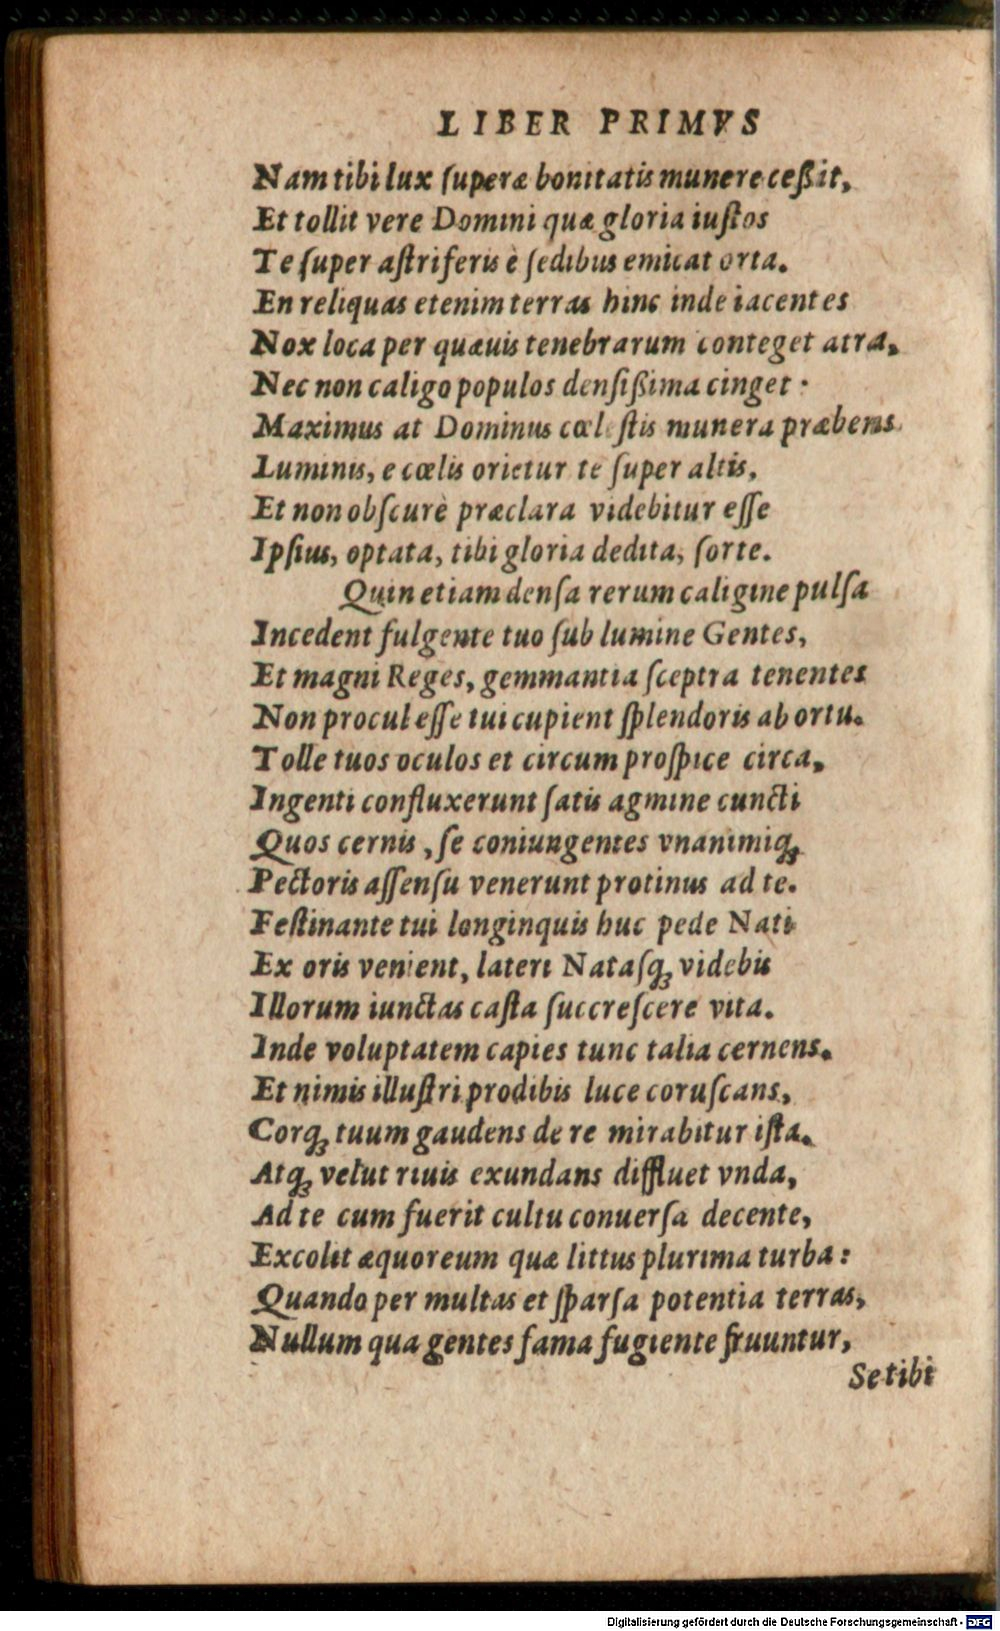 LIBER PRIMVS
Nam tibi lux ſuperæ bonitatis munere ceßit,
Et tollit vere Domini quæ gloria iuſtos
Te ſuper aſtriferis è ſedibus emicat orta.
En reliquas etenim terras hinc inde iacentes
Nox loca per quæuis tenebrarum conteget atra,
Nec non caligo populos denſißima cinget:
Maximus at Dominus cœleſtis munera præbens
Luminis, e cœlis orietur te ſuper altis,
Et non obſcurè præclara videbitur eſſe
Ipſius, optata, tibi gloria dedita, ſorte.
Quin etiam denſa rerum caligine pulſa
Incedent fulgente tuo ſub lumine Gentes,
Et magni Reges, gemmantia ſceptra tenentes
Non procul eſſe tui cupient ſplendoris ab ortu.
Tolle tuos oculos et circum proſpice circa,
Ingenti confluxerunt ſatis agmine cuncti
Quos cernis, ſe coniungentes vnanimiq́;
Pectoris aſſenſu venerunt protinus ad te.
Feſtinante tui longinquis huc pede Nati
Ex oris venient, lateri Nataſq; videbis
Illorum iunctas caſta ſuccreſcere vita.
Inde voluptatem capies tunc talia cernens.
Et nimis illuſtri prodibis luce coruſcans,
Corq; tuum gaudens de re mirabitur iſta.
Atq; velut riuis exundans diffluet vnda,
Ad te cum fuerit cultu conuerſa decente,
Excolit æquoreum quæ littus plurima turba:
Quando per multas et ſparſa potentia terras,
Nullum qua gentes fama fugiente fruuntur,
Se tibi
Digitalisierung gefördert durch die Deutsche Forschungsgemeinschaft - DFG